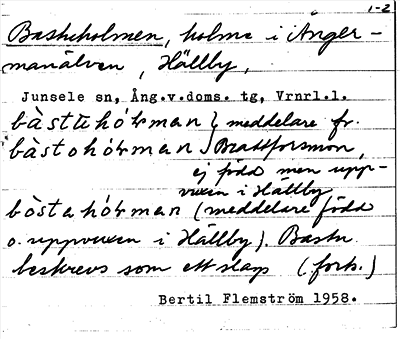 1-2
Bastuholmen, holme i Ånger-
manälven, Hällby,
Junsele sn, Ång.v.doms. tg, Vrnrl.l.
bàstuhó́rman } meddelare fr.
bàstohó́rman } Brattforsmon,
ej född men upp-
vuxen i Hällby
bòstahó́rman (meddelare född
o. uppvuxen i Hällby). Bastu
beskrevs som ett slags (forts.)
Bertil Flemström 1958.